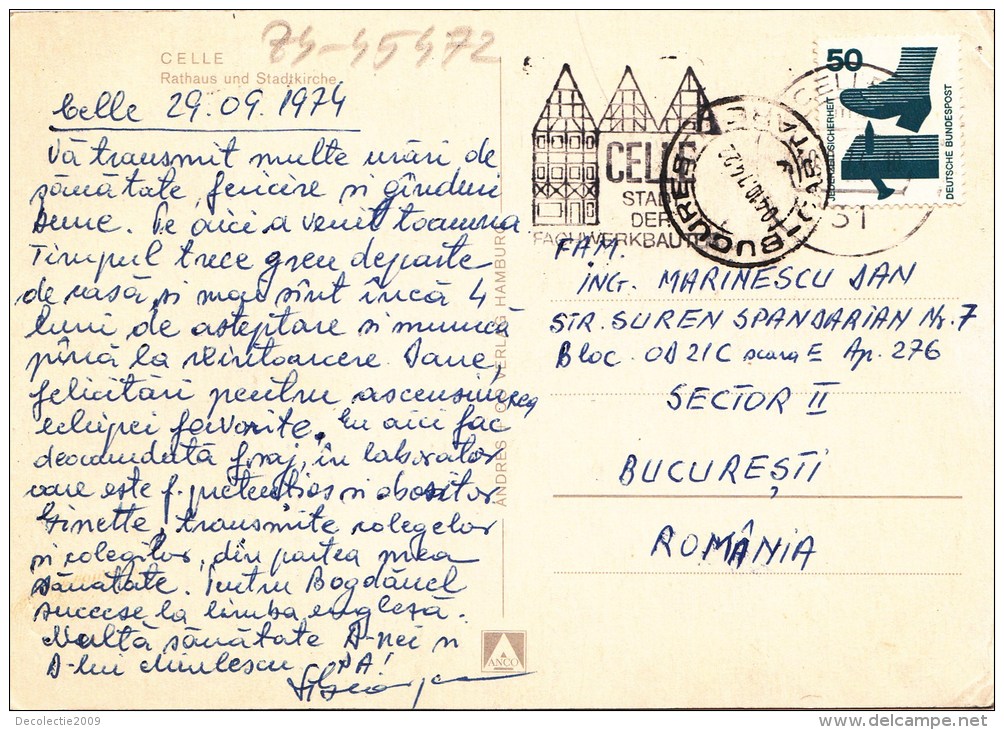 CELLE
Rathaus und Stadtkirche
74-45472
Celle 29.09.1974
Vă transmit multe urări de
sănătate, fericire și gînduri
bune. Pe aici a venit toamna
Timpul trece greu departe
de casă și mai sînt încă 4
luni de așteptare și muncă
pînă la reîntoarcere. Dane,
felicitări pentru ascensiunea
echipei favorite. Eu aici fac
deocamdată f.raj, în laborator
care este f. pretențios și obositor
Ginette, transmite colegelor
și colegilor, din partea mea
sănătate. Pentru Bogdănel
succese la limba engleză.
Multă sănătate D-nei și
D-lui Miulescu
ANDRES + CO VERLAG HAMBURG
ANCO
CELLE
STADT
DER
FACHWERKBAUTEN
BUCUREȘTI
CELLE
31
50
JEDERZEIT SICHERHEIT
DEUTSCHE BUNDESPOST
FAM.
ING. MARINESCU DAN
STR. SUREN SPANDARIAN Nr. 7
Bloc. OD 21C scara E Ap. 276
SECTOR II
BUCUREȘTI
ROMÂNIA
Decolectie2009
delcampe.net